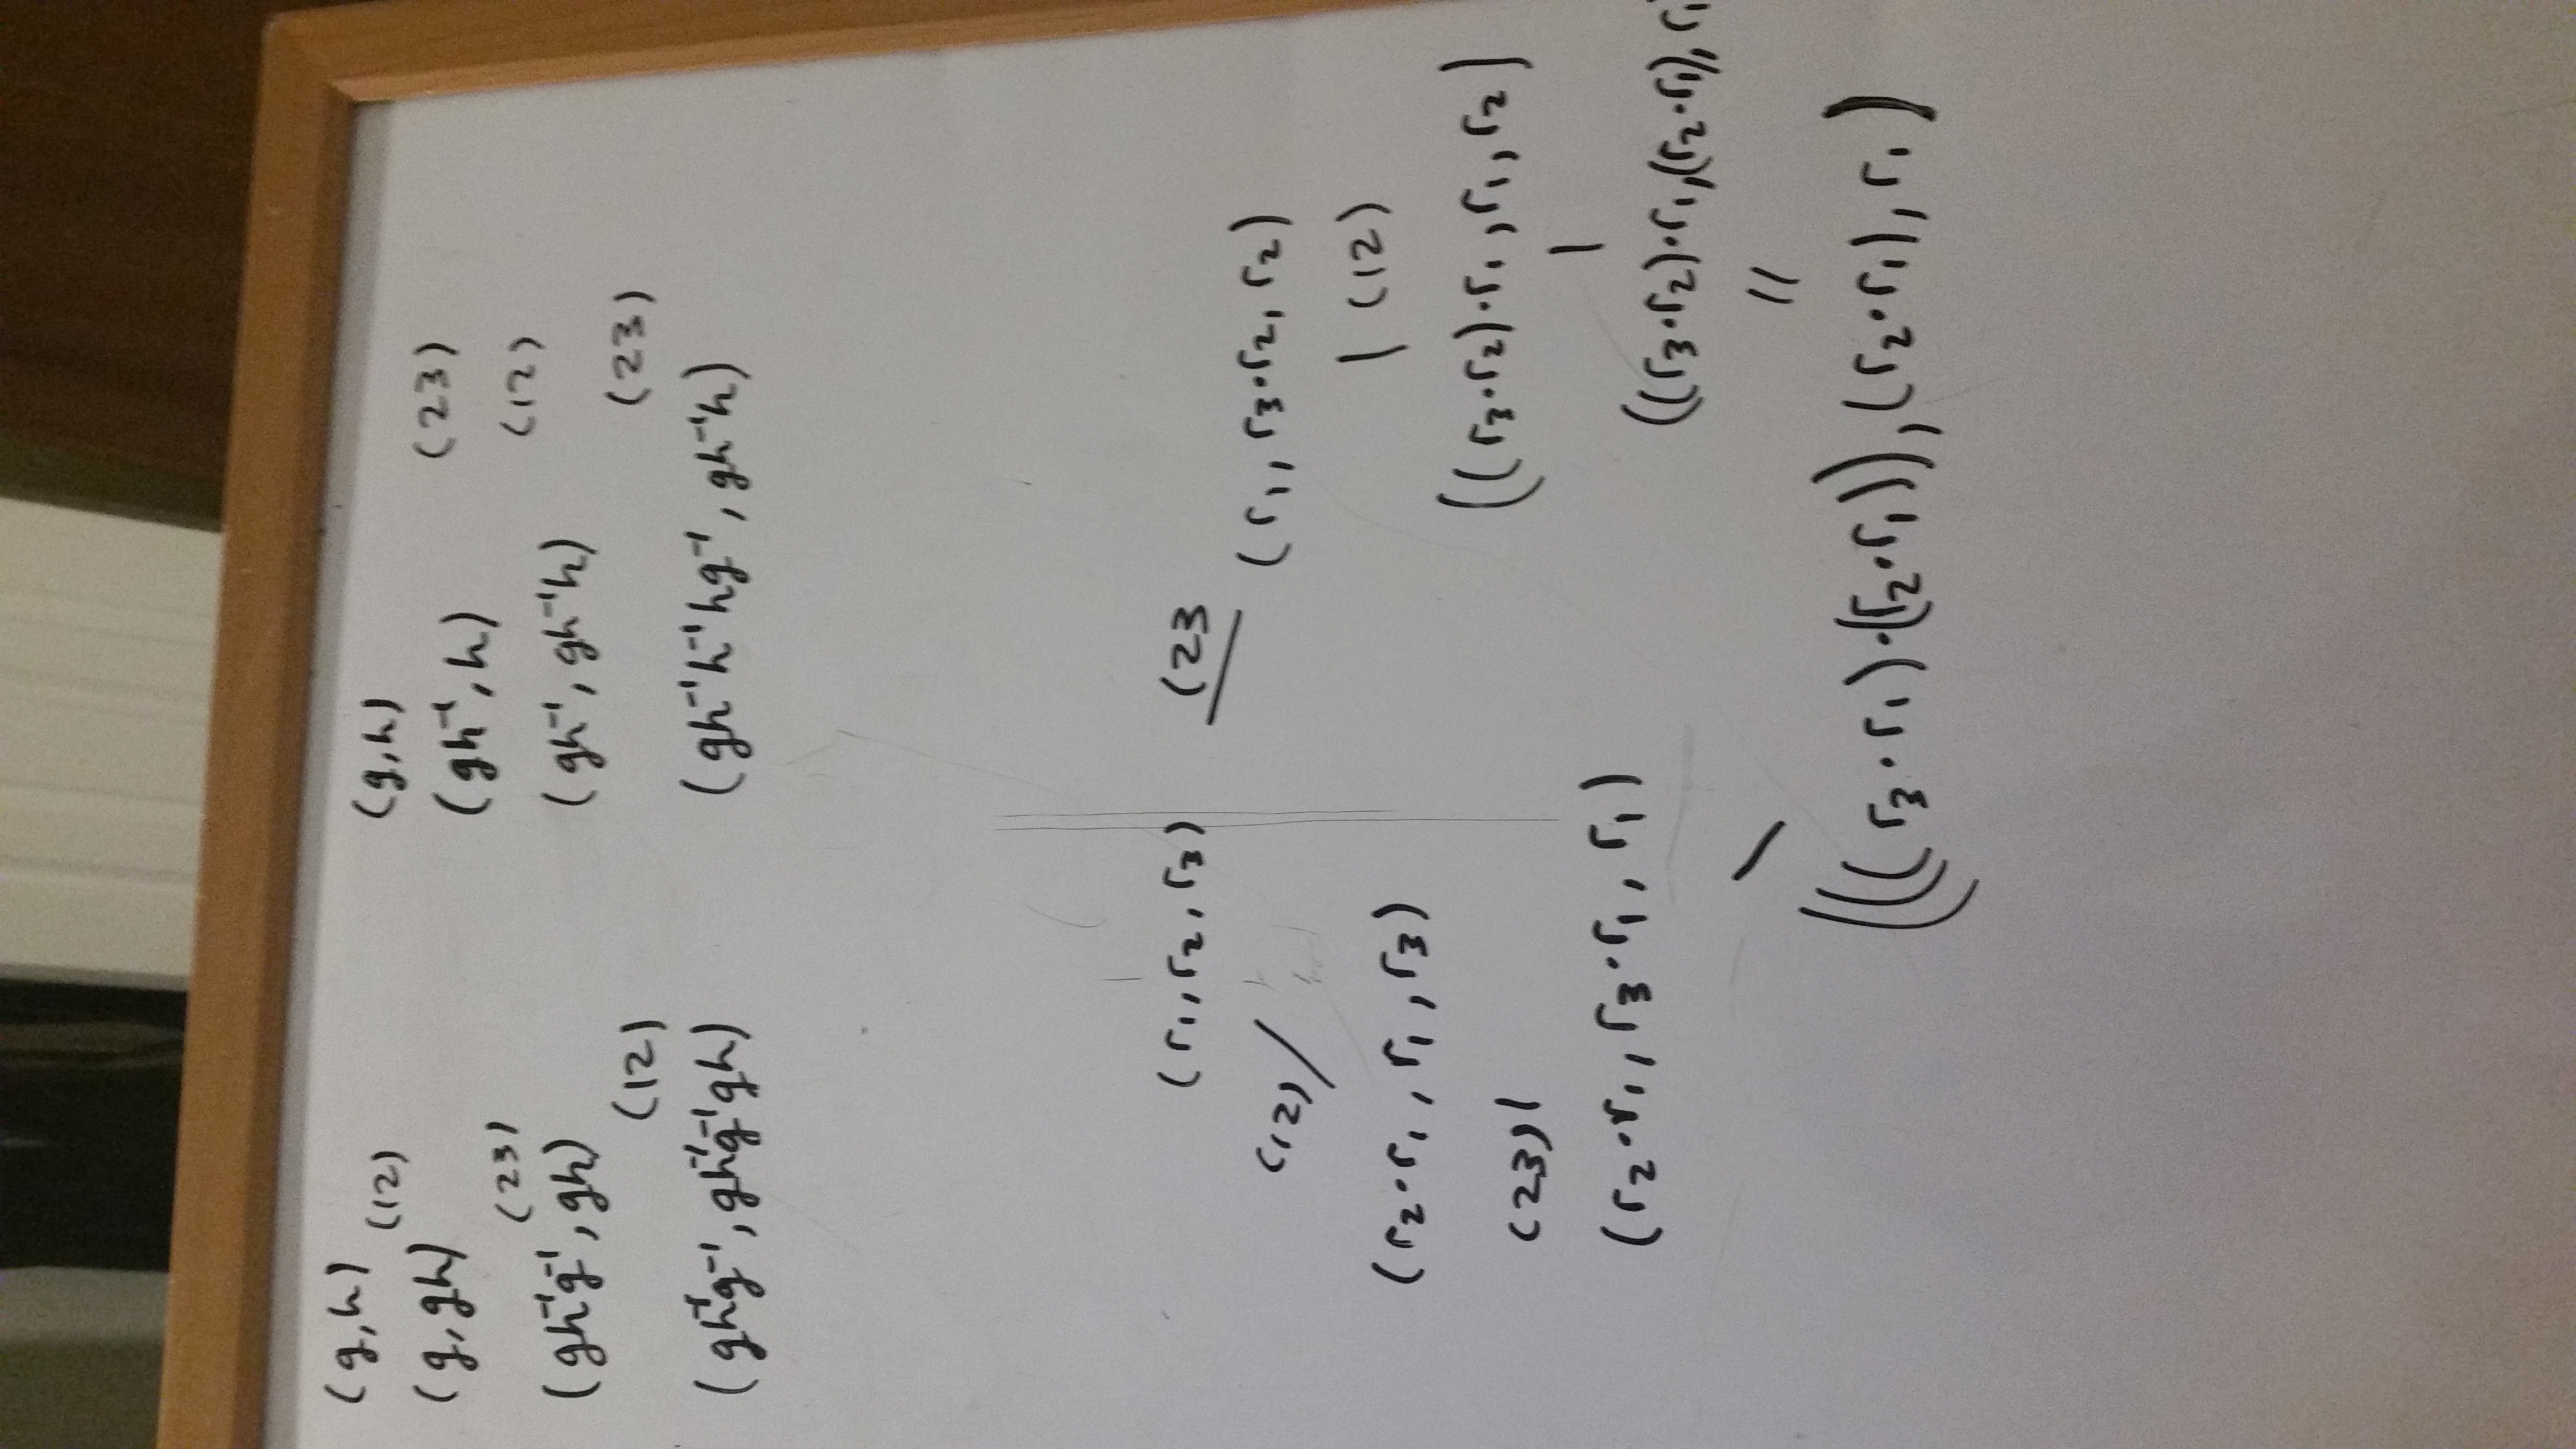 (g,h)
(12)
(g,gh)
(23)
(gh⁻¹g⁻¹,gh)
(12)
(gh⁻¹g⁻¹,gh⁻¹g⁻¹gh)
(g,h)
(23)
(gh⁻¹,h)
(12)
(gh⁻¹,gh⁻¹h)
(23)
(gh⁻¹h⁻¹hg⁻¹,gh⁻¹h)
(r₁,r₂,r₃)
(12) /
(r₂·r₁,r₁,r₃)
(23) |
(r₂·r₁,r₃·r₁,r₁)
\
(23
(r₁,r₃·r₂,r₂)
| (12)
((r₃·r₂)·r₁,r₁,r₂)
|
((r₃·r₂)·r₁,(r₂·r₁),r₁
||
(((r₃·r₁)·(r₂·r₁)),(r₂·r₁),r₁)